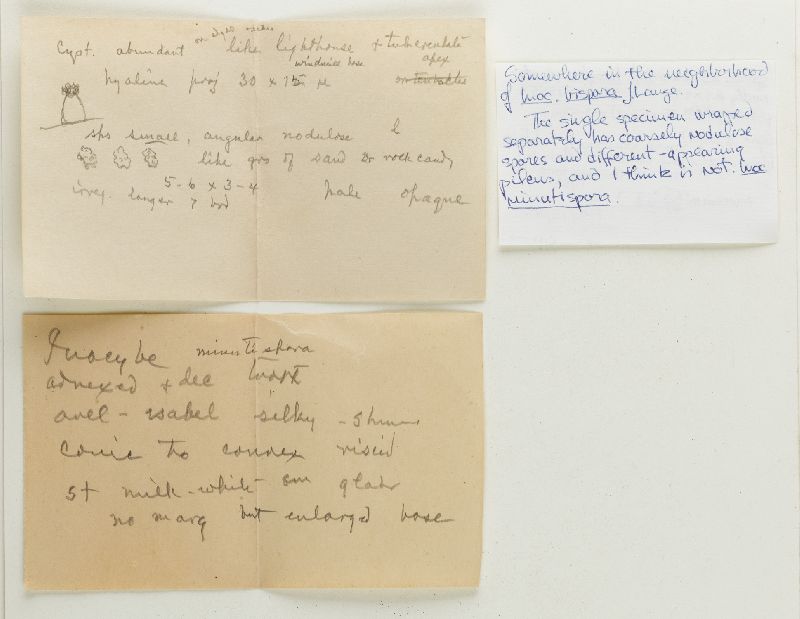 on edges
Cyst. abundant like lighthouse + tuberculate
windmill base apex
hyaline proj 30 x 15 µ or tentacles
sps small, angular nodulose
like grs of sand or rock candy
5-6 x 3-4 pale opaque
irreg. longer 7
Inocybe minutispora
adnexed + dec
avel - isabel silky - shin
conic to convex viscid
st milk-white sm glabr
no marg but enlarged base
Somewhere in the neighborhood
of Inoc. bispora /Lange.
The single specimen wrapped
separately has coarsely nodulose
spores and different-appearing
pileus, and I think is not Inoc
minutispora.